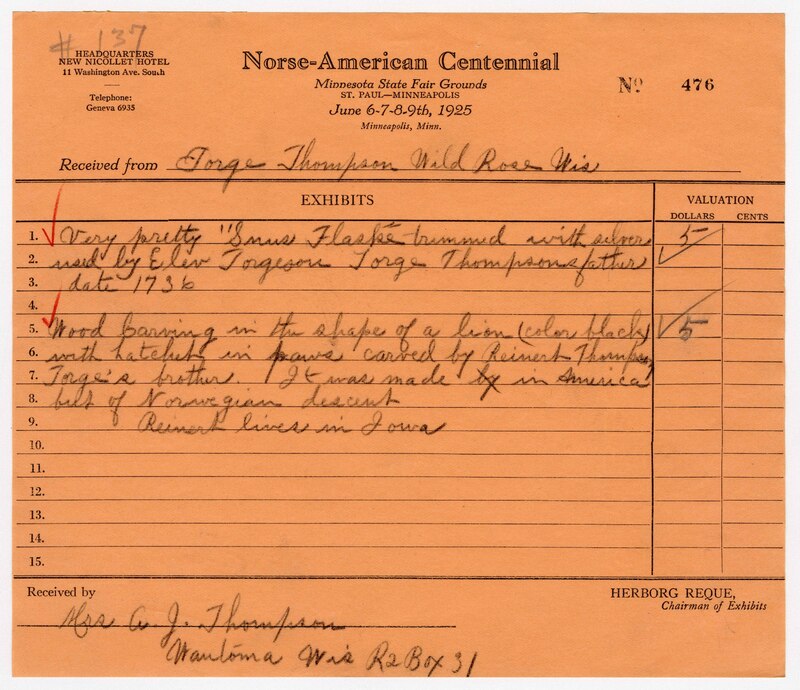 # 137
HEADQUARTERS
NEW NICOLLET HOTEL
11 Washington Ave. South
Telephone:
Geneva 6935
Norse-American Centennial
Minnesota State Fair Grounds
ST. PAUL—MINNEAPOLIS
June 6-7-8-9th, 1925
Minneapolis, Minn.
No 476
Received from Torge Thompson Wild Rose Wis
EXHIBITS
VALUATION
DOLLARS CENTS
1. Very pretty "Snus Flaske trimmed with silver 5
2. used by Elev Torgeson Torge Thompsons father
3. date 1736
4.
5. Wood Carving in the shape of a lion (color black) 5
6. with hatchet in paws carved by Reinert Thompson
7. Torge's brother. It was made by in America
8. but of Norwegian descent
9. Reinert lives in Iowa
10.
11.
12.
13.
14.
15.
Received by
HERBORG REQUE,
Chairman of Exhibits
Mrs A. J. Thompson
Wautoma Wis R2 Box 31